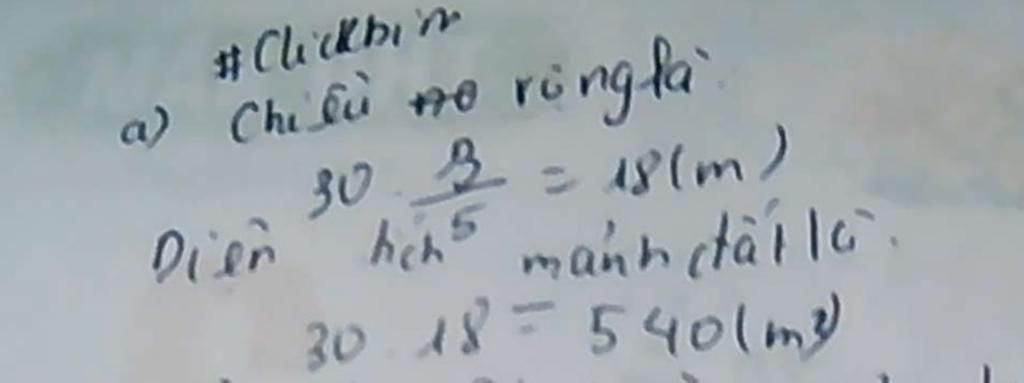 #Clickbim
a) Chiều rộng là
30 . 3/5 = 18 (m)
Diện tích mảnh đất là.
30 . 18 = 540 (m²)